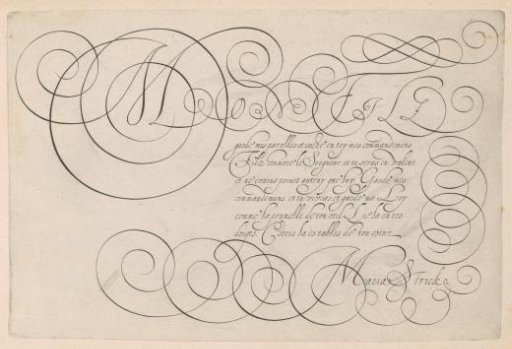 MON FILZ
garde mes parolles et cache en toy mes commandemens
Filz honnore le Seigneur et tu seras en valeur
et ne crains point autruy que luy. Garde mes
commandemens et tu vivras et garde ma Loy
comme la prunelle de ton oeil. Lie la en tes
doigts. Escris la es tables de ton coeur.
Marias Stricke